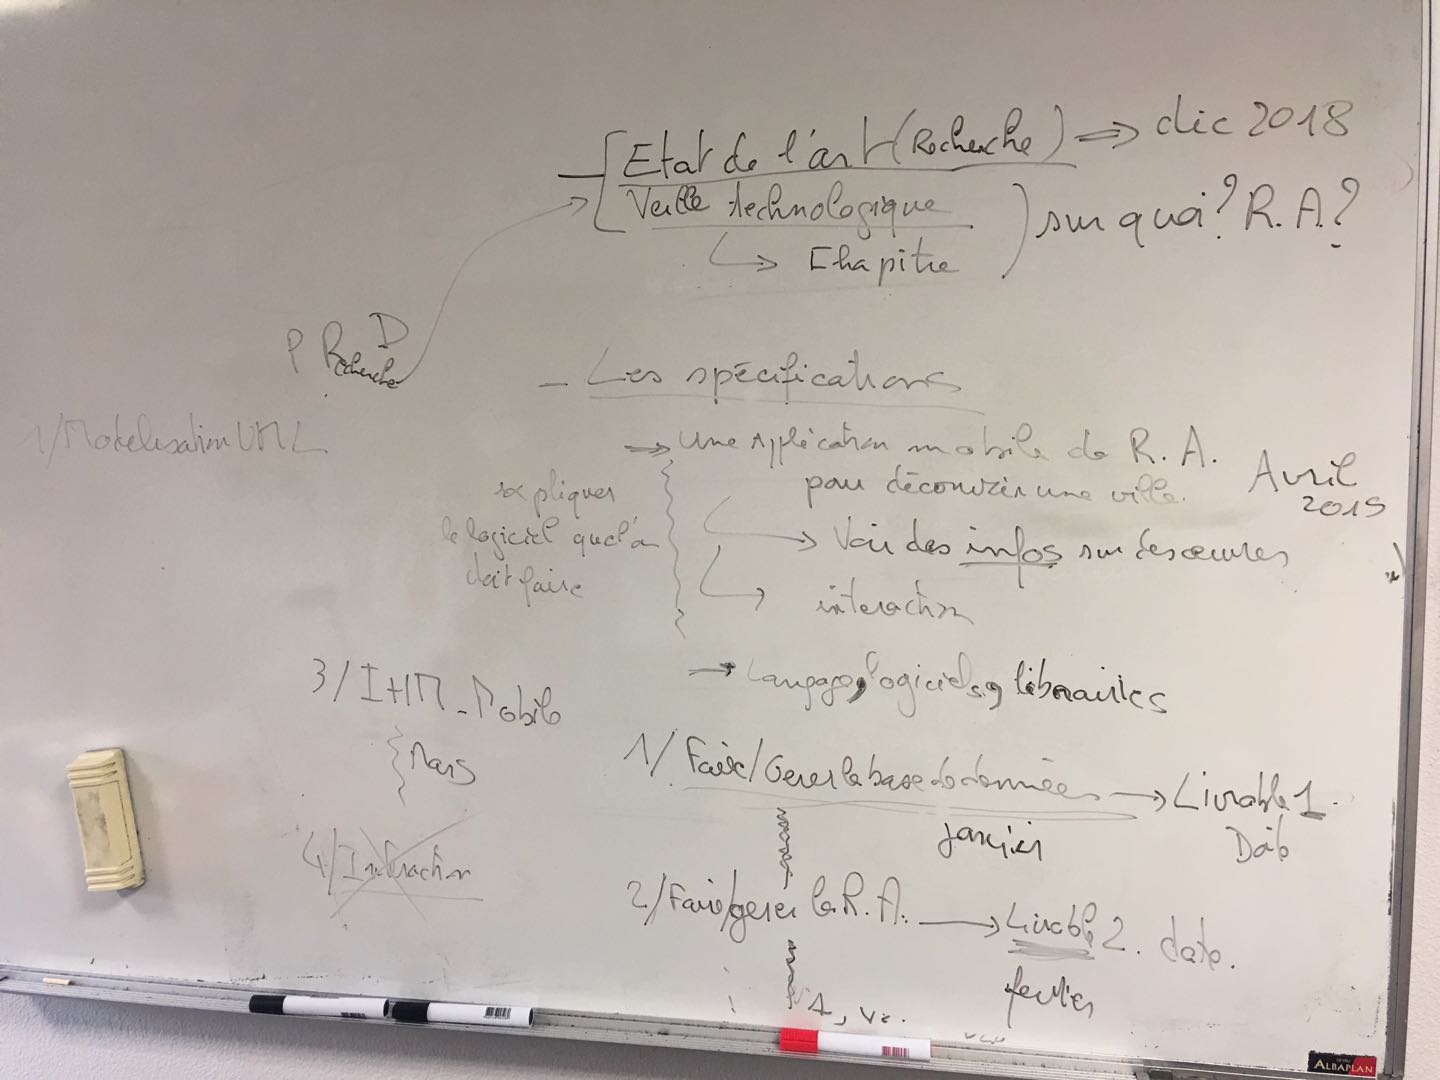 Etat de l'art (Recherche) => dic 2018
Veille technologique
sur quoi? R.A?
↳ Chapitre
P R D
Recherche
- Les spécifications
1/ Modelisation UML
→ une application mobile de R.A.
pour découvrir une ville.
Avril
2019
expliquer
le logiciel quel a
doit faire
→ Voir des infos sur des œuvres
→ interaction
→ Langages, logiciels, librairies
3/ IHM_Mobile
Mars
1/ Faire/Gerer la base de données → Livrable 1.
janvier
Date
4/ Interaction
2/ Faire/gerer la R.A. → Livrable 2. date.
fevrier
ALBAPLAN